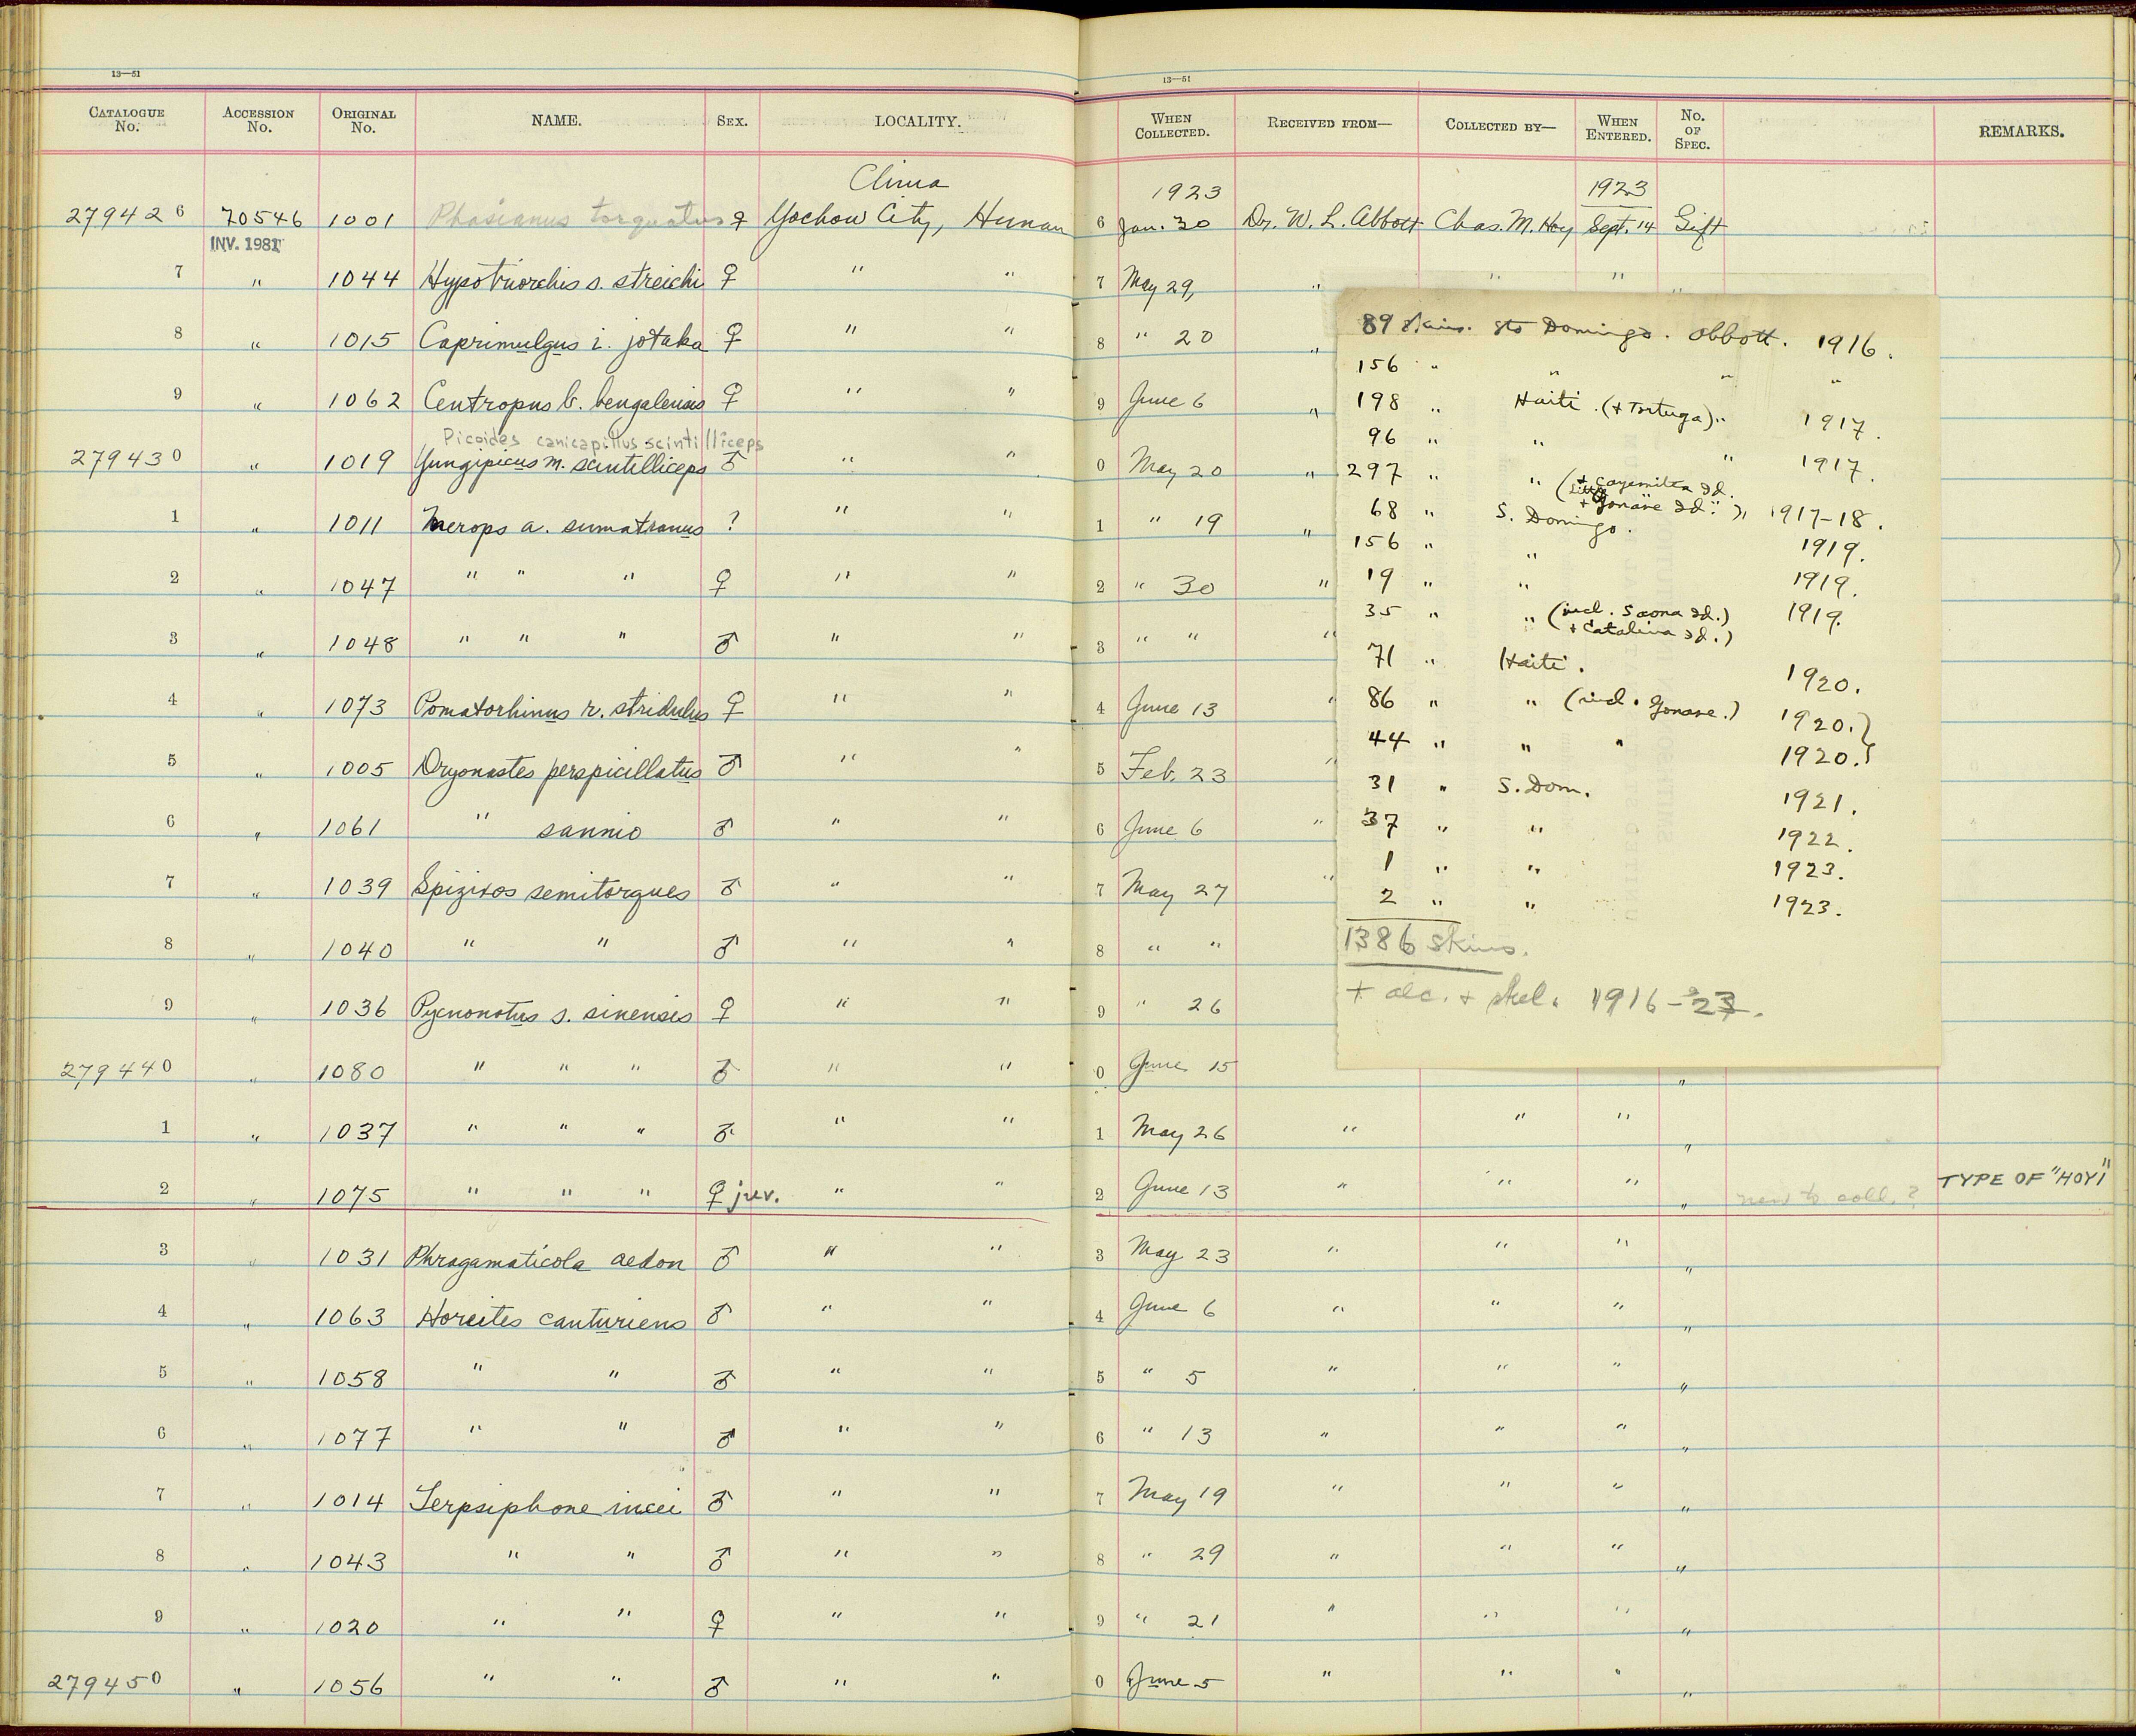 13—51
CATALOGUE No. ACCESSION No. ORIGINAL No. NAME. SEX. LOCALITY.
China
279426 70546 1001 Phasianus torquatus ♀ Yochow City, Hunan
INV. 1981
7 " 1044 Hypotriorchis s. streichi ♀ " "
8 " 1015 Caprimulgus i. jotaka ♀ " "
9 " 1062 Centropus b. bengalensis ♀ " "
Picoides canicapillus scintilliceps
279430 " 1019 Yungipicus m. scintilliceps ♂ " "
1 " 1011 Merops a. sumatranus ? " "
2 " 1047 " " " ♀ " "
3 " 1048 " " " ♂ " "
4 " 1073 Pomatorhinus r. stridulus ♀ " "
5 " 1005 Dryonastes perspicillatus ♂ " "
6 " 1061 " sannio ♂ " "
7 " 1039 Spizixos semitorques ♂ " "
8 " 1040 " " ♂ " "
9 " 1036 Pycnonotus s. sinensis ♀ " "
279440 " 1080 " " " ♂ " "
1 " 1037 " " " ♂ " "
2 " 1075 " " " ♀ juv. " "
3 " 1031 Phragamaticola aedon ♂ " "
4 " 1063 Horeites canturiens ♂ " "
5 " 1058 " " ♂ " "
6 " 1077 " " ♂ " "
7 " 1014 Terpsiphone incei ♂ " "
8 " 1043 " " ♂ " "
9 " 1020 " " ♀ " "
279450 " 1056 " " ♂ " "
13—51
WHEN COLLECTED. RECEIVED FROM— COLLECTED BY— WHEN ENTERED. No. OF SPEC. REMARKS.
1923 1923
6 Jan. 30 Dr. W. L. Abbott Chas. M. Hoy Sept. 14 Gift
7 May 29, " " " "
8 " 20 "
9 June 6 "
0 May 20 "
1 " 19 "
2 " 30 "
3 " " "
4 June 13 "
5 Feb. 23 "
6 June 6 "
7 May 27 "
8 " "
9 " 26
0 June 15 "
1 May 26 " " " "
2 June 13 " " " " new to coll. ? TYPE OF "HOYI"
3 May 23 " " " "
4 June 6 " " " "
5 " 5 " " " "
6 " 13 " " " "
7 May 19 " " " "
8 " 29 " " " "
9 " 21 " " " "
0 June 5 " " " "
89 skins. Sto Domingo. Abbott. 1916.
156 " " " "
198 " Haiti. (+ Tortuga) " 1917.
96 " " " 1917.
297 " " (+ Cayemites Id.
+ Little Gonave Id.") " 1917-18.
68 " S. Domingo. 1919.
156 " " 1919.
19 " " 1919.
35 " " (incl. Saona Id.)
+ Catalina Id.)
71 " Haiti. 1920.
86 " " (incl. Gonave.) 1920.}
44 " " " 1920.}
31 " S. Dom. 1921.
37 " " 1922.
1 " " 1923.
2 " " 1923.
1386 skins.
+ alc. + skel. 1916-23.